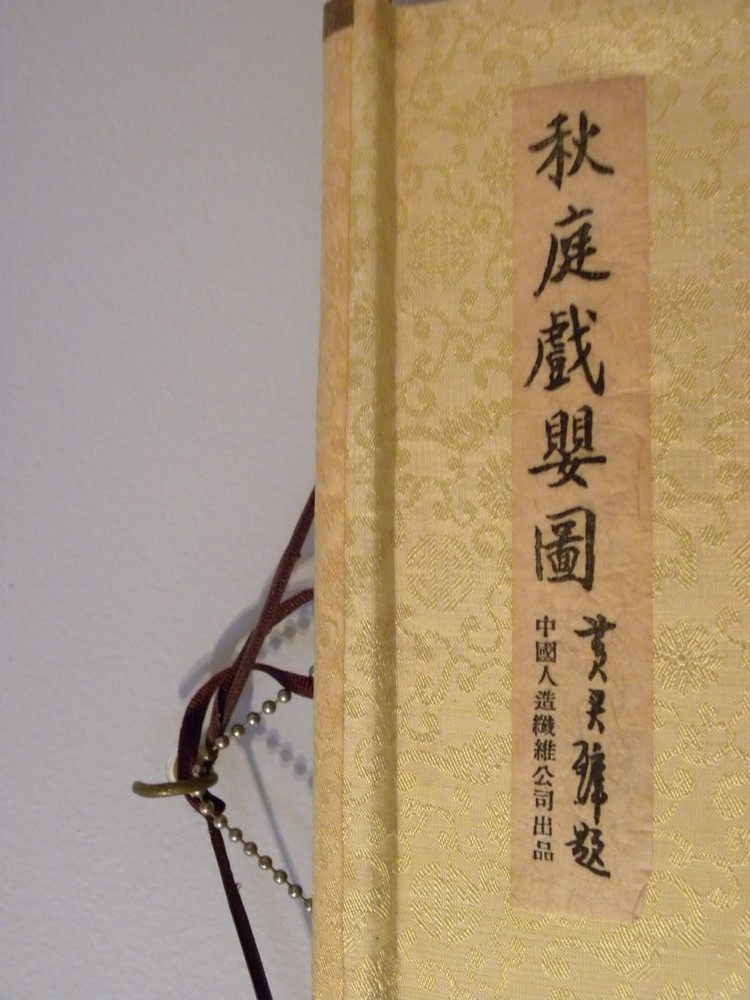 秋庭戲嬰圖
黃君璧題
中國人造纖維公司出品